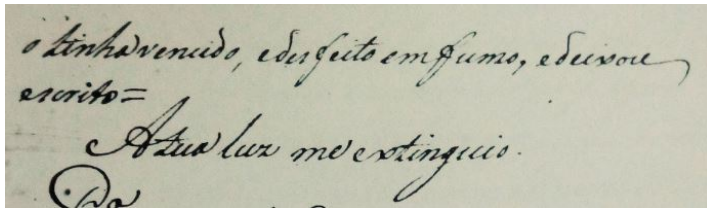 o tinha vencido, e desfeito em fumo, e deixou
escrito=
A tua luz me extinguio.
Da